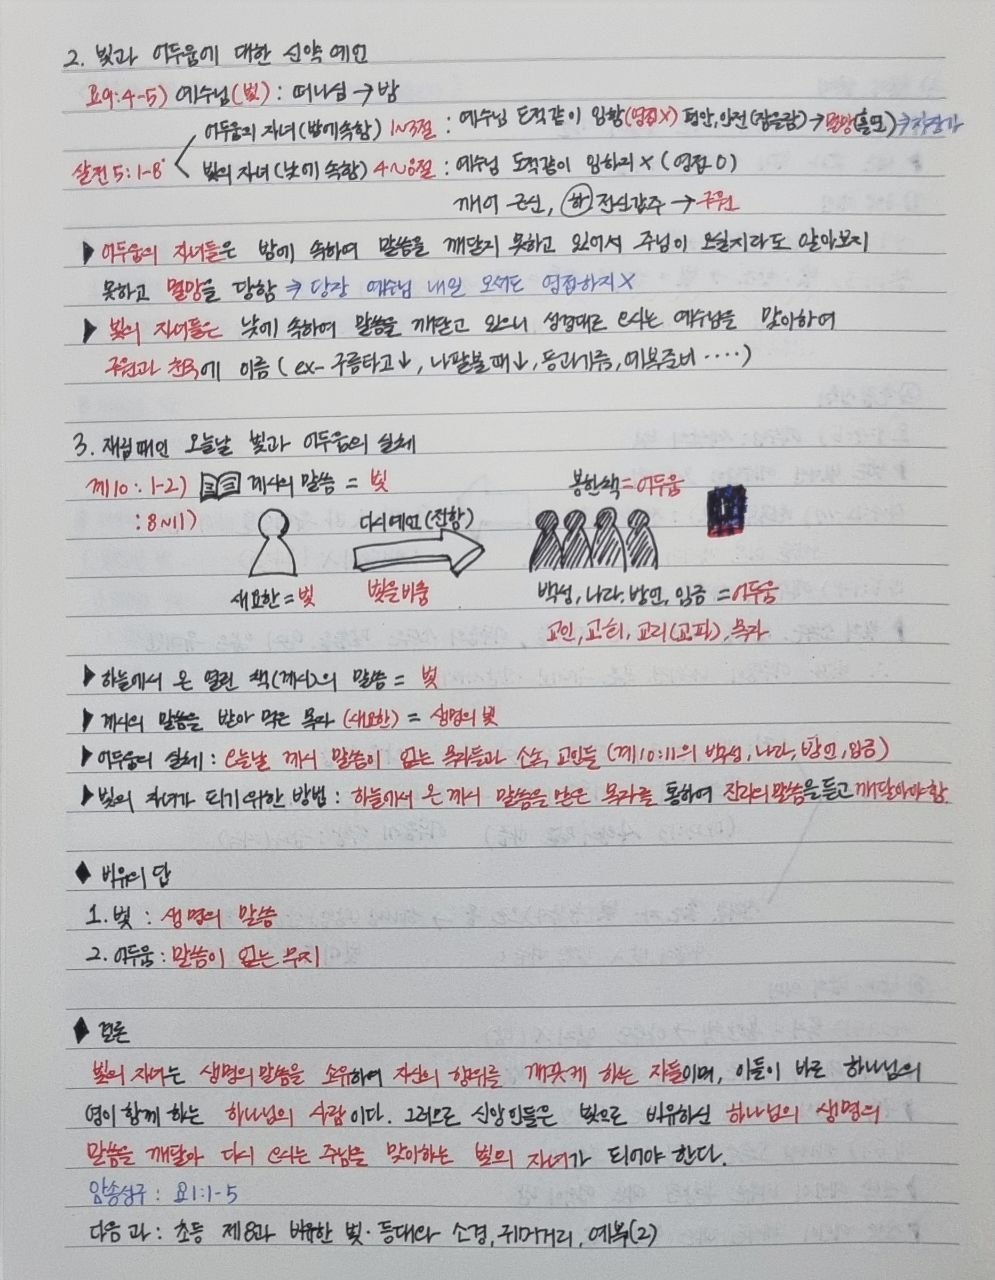 2. 빛과 어두움에 대한 신약 예언
요9:4-5) 예수님(빛) : 떠나심 → 밤
어두움의 자녀(밤에속함) 1~3절 : 예수님 도적같이 임함(영접X) 평안,안전(잠을잠)→멸망(홀연)
살전5:1-8
빛의 자녀(낮에 속함) 4~8절 : 예수님 도적같이 임하지 X (영접 O)
깨어 근신, 전신갑주 → 구원
▶ 어두움의 자녀들은 밤에 속하여 말씀을 깨닫지 못하고 있어서 주님이 오실지라도 알아보지
못하고 멸망을 당함 → 당장 예수님 내일 오셔도 영접하지X
▶ 빛의 자녀들은 낮에 속하여 말씀을 깨닫고 있으니 성경대로 오시는 예수님을 맞이하여
구원과 천국에 이름 (ex- 구름타고↓, 나팔불때↓, 등과기름, 예복준비 ····)
3. 재림때인 오늘날 빛과 어두움의 실체
계10 : 1-2) 계시의 말씀 = 빛
봉한책=어두움
: 8~11)
다시예언(전함)
새요한=빛
빛을비춤
백성, 나라, 방언, 임금 =어두움
교인, 교회, 교리(교파), 목자
▶ 하늘에서 온 열린 책(계시)의 말씀 = 빛
▶ 계시의 말씀을 받아 먹은 목자 (새요한) = 생명의 빛
▶ 어두움의 실체 : 오늘날 계시 말씀이 없는 목자들과 소속 교인들 (계10:11의 백성, 나라, 방언, 임금)
▶ 빛의 자녀가 되기위한 방법 : 하늘에서 온 계시 말씀을 받은 목자를 통하여 진리의말씀을듣고 깨달아야함.
◆ 비유의 답
1. 빛 : 생명의 말씀
2. 어두움 : 말씀이 없는 무지
◆ 결론
빛의 자녀는 생명의말씀을 소유하여 자신의 행위를 깨끗케 하는 자들이며, 이들이 바로 하나님의
영이 함께 하는 하나님의 사람이다. 그러므로 신앙인들은 빛으로 비유하신 하나님의 생명의
말씀을 깨달아 다시 오시는 주님을 맞이하는 빛의 자녀가 되어야 한다.
암송성구 : 요1:1-5
다음 과 : 초등 제8과 비유한 빛·등대와 소경, 귀머거리, 예복(2)